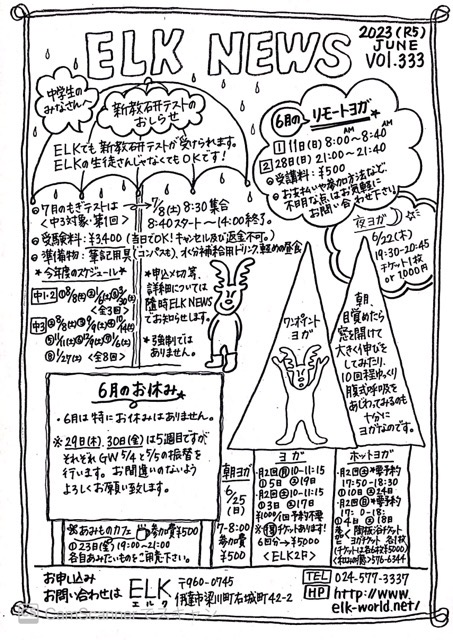 ELK NEWS
2023(R5)
JUNE
VOL.333
中学生の
みなさんへ
新教研テストの
おしらせ
ELKでも新教研テストが受けられます。
ELKの生徒さんじゃなくてもOKです!
7月のもぎテストは→7/8(土)8:30集合
<中3対象・第1回> 8:40スタート〜14:00終了。
受験料:¥3,400(当日でOK!キャンセル及び返金不可。)
準備物:筆記用具(コンパスも)、水分補給用ドリンク、軽めの昼食
*今年度のスケジュール*
中1・2
<全3回>
中3
<全8回>
*申込〆切等、
詳細については
随時ELK NEWS
でお知らせします。
*強制では
ありません。
6月の リモートヨガ
1 11日(日)8:00〜8:40
AM AM
2 28日(日)21:00〜21:40
受講料:¥500
お支払いや参加方法など、
不明な点はお気軽に
お問い合わせ下さい
夜ヨガ
6/22(木)
19:30-20:45
チケット1枚
or 1000円
ワンポイント
ヨガ
朝、
目覚めたら
窓を開けて
大きく伸びを
してみたり、
10回程ゆっくり
腹式呼吸を
あじわってみるのも
十分に
ヨガなのです。
6月のお休み
・6月は特にお休みはありません。
※29日(木)、30日(金)は5週目ですが
それぞれGW 5/4と5/5の振替を
行います。お間違いのないよう
よろしくお願い致します。
※あみものカフェ 参加費¥500
①23日(金)19:00〜21:00
各自あみたいものをご用意下さい。
朝ヨガ
6/25
(日)
7-8:00
参加費
¥500
ヨガ
・月2回(月)10-11:15
①5日 ②19日
・月2回(土)10-11:15
①3日 ②17日
¥1000/1回 予約不要
チケットあります!
6回分→¥5000
<ELK2F>
ホットヨガ
・月2回(土)*要予約
17:50-18:30
①10日 ②24日
・月2回(日)*要予約
17:0-18:
①4日 ②18日
ヨガチケット 各1枚
(チケットは各6枚¥5000)
576-6344
お申し込み
お問い合わせは
ELK
エルク
〒960-0745
伊達市梁川町右城町42-2
TEL 024-577-3337
HP http://www.
elk-world.net/
CamScanner